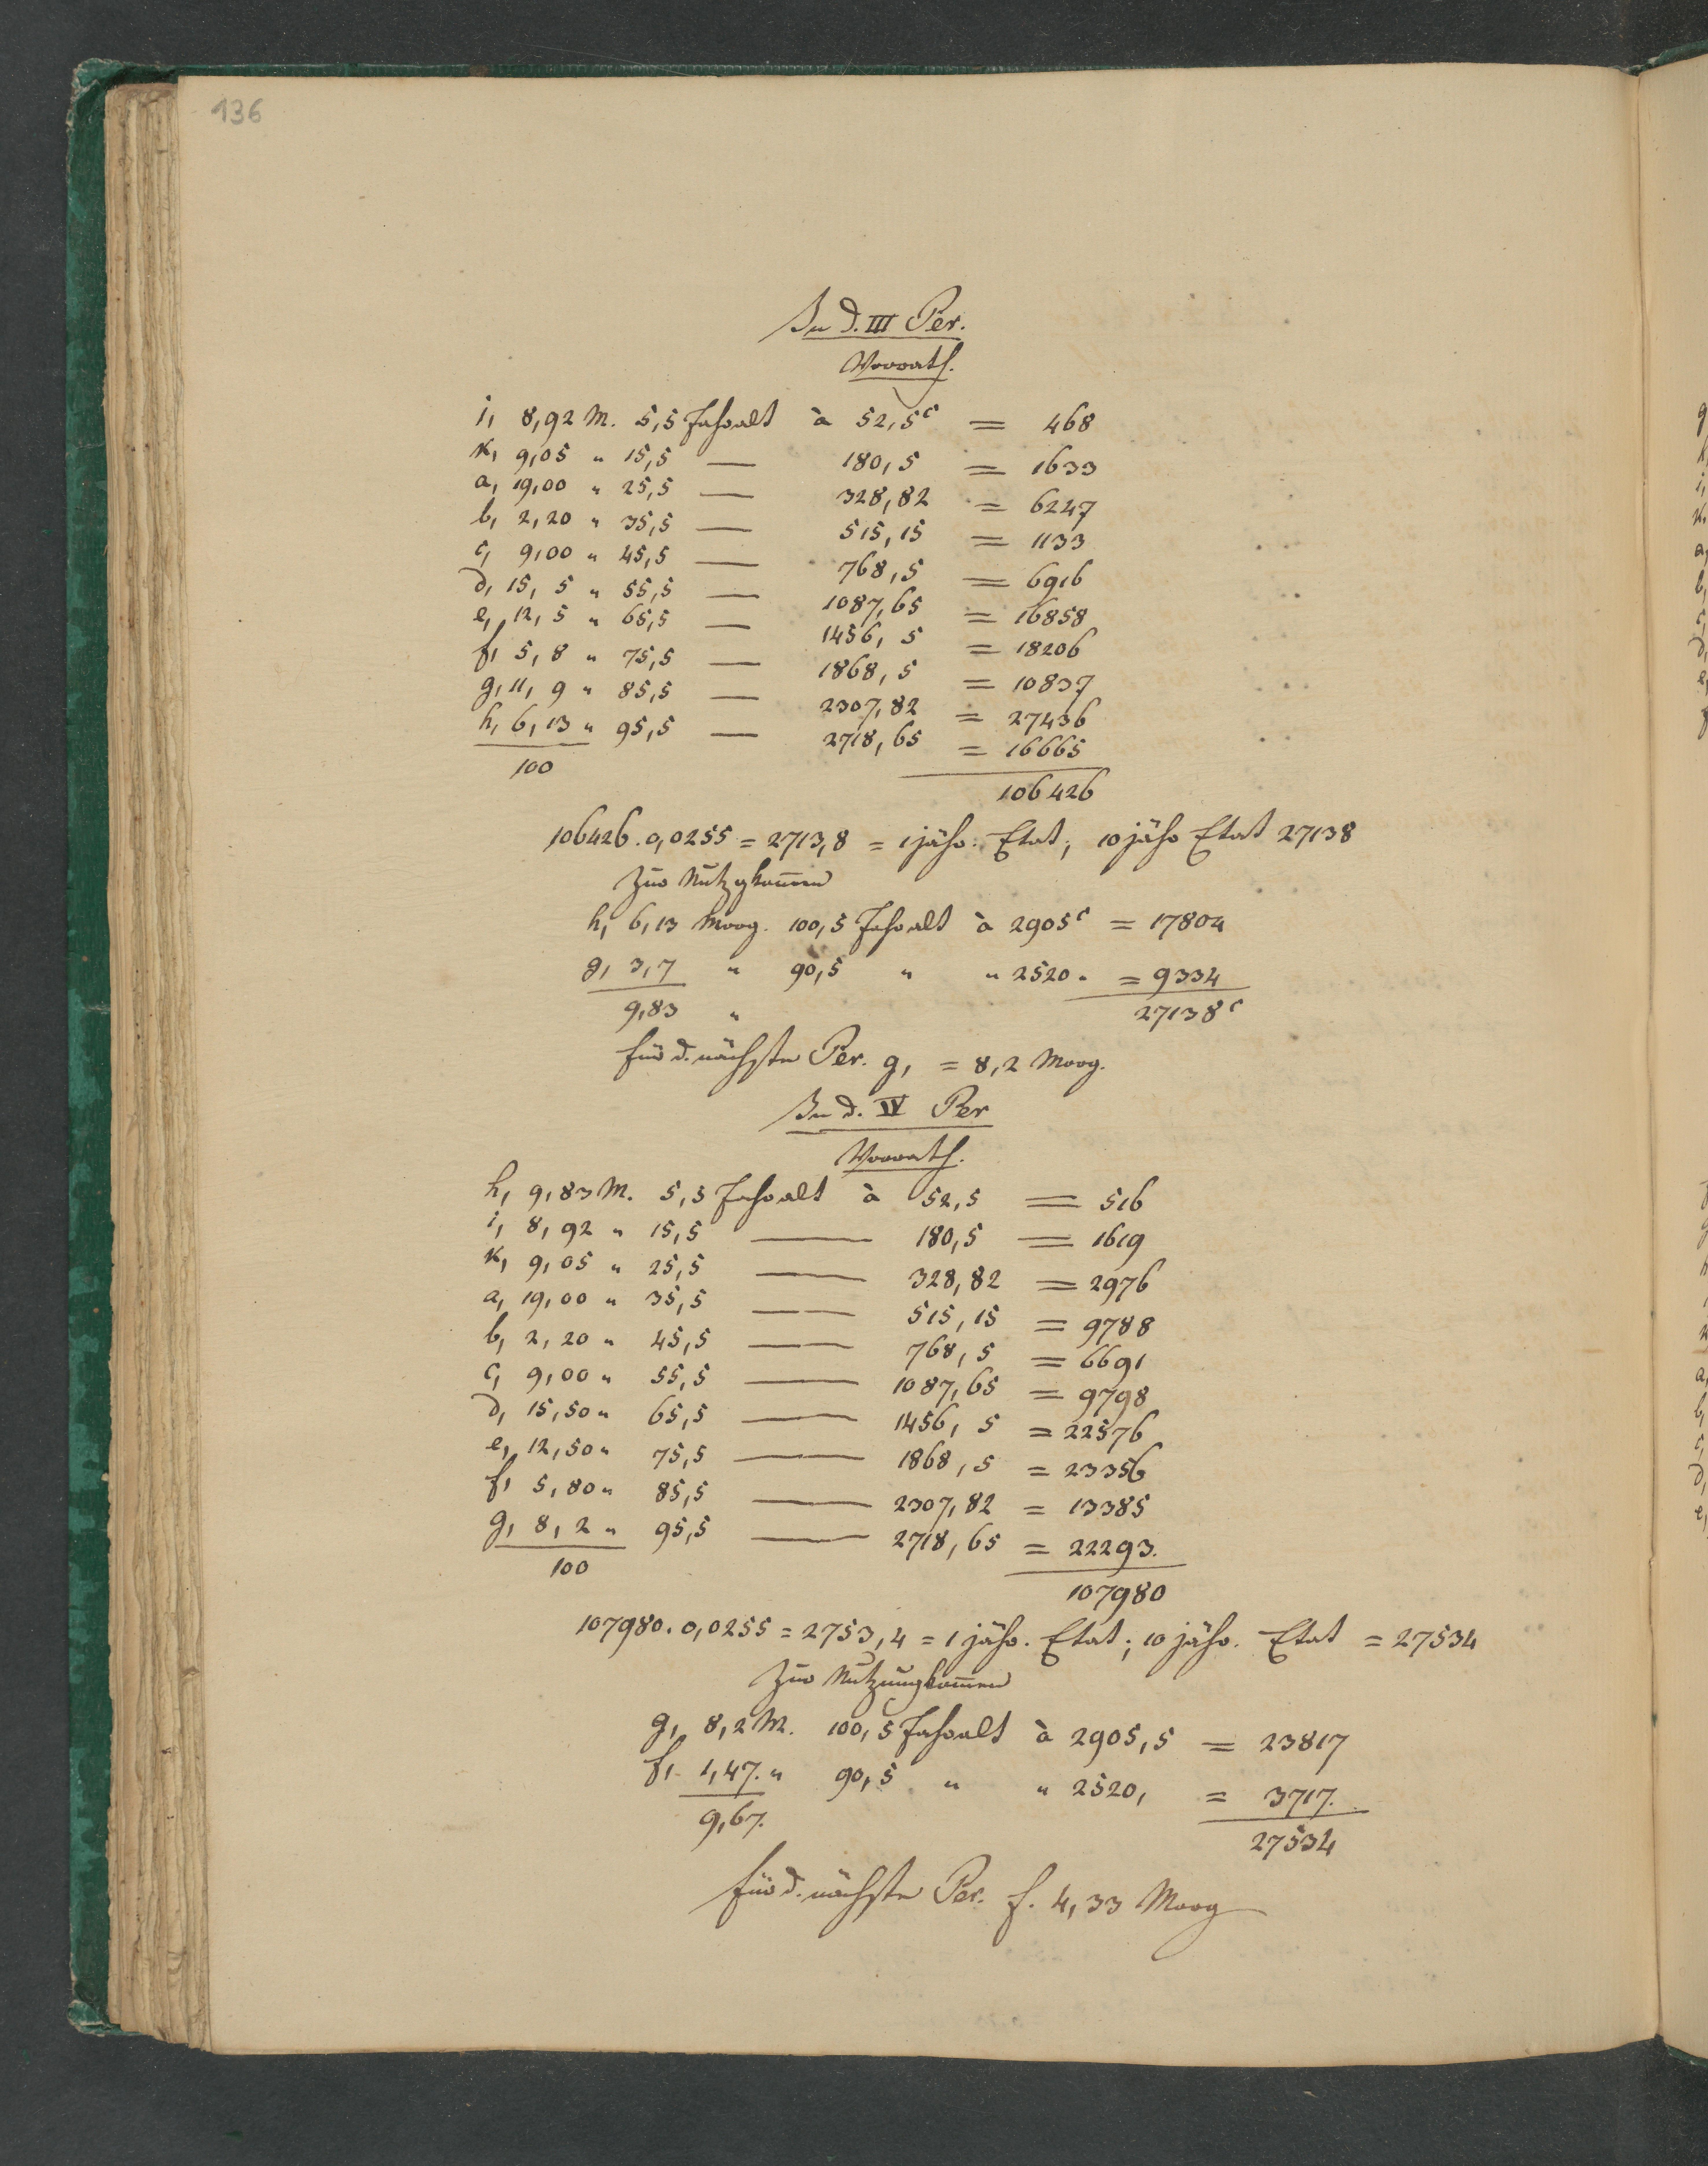 136
In d. III Per.
Vorrath.
i, 8,92 M. 5,5 Jahralt à 52,5c = 468
k, 9,05 " 15,5 — 180,5 = 1633
a, 19,00 " 25,5 — 328,82 = 6247
b, 2,20 " 35,5 — 515,15 = 1133
c, 9,00 " 45,5 — 768,5 = 6916
d, 15,5 " 55,5 — 1087,65 = 16858
e, 12,5 " 65,5 — 1456,5 = 18206
f, 5,8 " 75,5 — 1868,5 = 10837
g, 11,9 " 85,5 — 2307,82 = 27436
h, 6,13 " 95,5 — 2718,65 = 16665
100 106426
106426.0,0255 = 2713,8 = 1 jähr. Etat; 10 jähr Etat 27138
Zur Nutzgkom̄en
h, 6,13 Morg. 100,5 Jahralt à 2905c = 17804
g, 3,7 " 90,5 " " 2520 " = 9334
9,83 " 27138c
für d. nächste Per. g, = 8,2 Morg.
In d. IV Per
Vorrath.
h, 9,83 M. 5,5 Jahralt à 52,5 = 516
i, 8,92 " 15,5 — 180,5 = 1619
k, 9,05 " 25,5 — 328,82 = 2976
a, 19,00 " 35,5 — 515,15 = 9788
b, 2,20 " 45,5 — 768,5 = 6691
c, 9,00 " 55,5 — 1087,65 = 9798
d, 15,50 " 65,5 — 1456,5 = 22576
e, 12,50 " 75,5 — 1868,5 = 23356
f, 5,80 " 85,5 — 2307,82 = 13385
g, 8,2 " 95,5 — 2718,65 = 22293.
100 107980
107980.0,0255 = 2753,4 = 1 jähr. Etat; 10 jähr. Etat = 27534
Zur Nutzungkom̄en
g, 8,2 M. 100,5 Jahralt à 2905,5 = 23817
f, 1,47. " 90,5 " " 2520, = 3717.
9,67. 27534
für d. nächste Per. f. 4,33 Morg